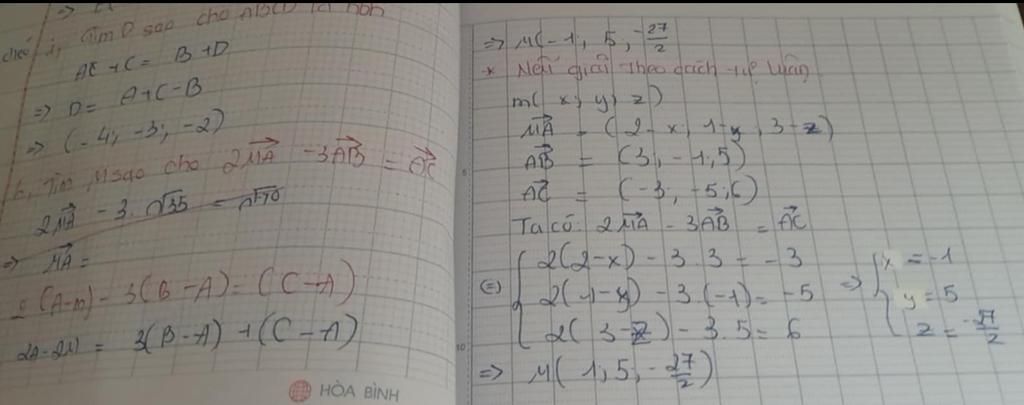 i, Tìm D sao cho ABCD là hbh
A + C = B + D
=> D = A + C - B
=> (-4; -3; -2)
k, Tìm M sao cho 2MA - 3AB = AC
2MA - 3. √35 = √70
=> MA =
2(A-m) - 3(B - A) = (C - A)
2A - 2M = 3(B - A) + (C - A)
HÒA BÌNH
=> M(-1, 5, -27/2
* Nếu giải theo cách tự luận
m( x, y, z)
MA = (2 - x, 1 - y, 3 - z)
AB = (3, -1, 5)
AC = (-3, -5, 6)
Ta có: 2MA - 3AB = AC
2(2 - x) - 3.3 = -3 x = -1
(=) 2(1 - y) - 3(-1) = -5 => y = 5
2(3 - z) - 3.5 = 6 z = -27/2
=> M( 1; 5, -27/2)